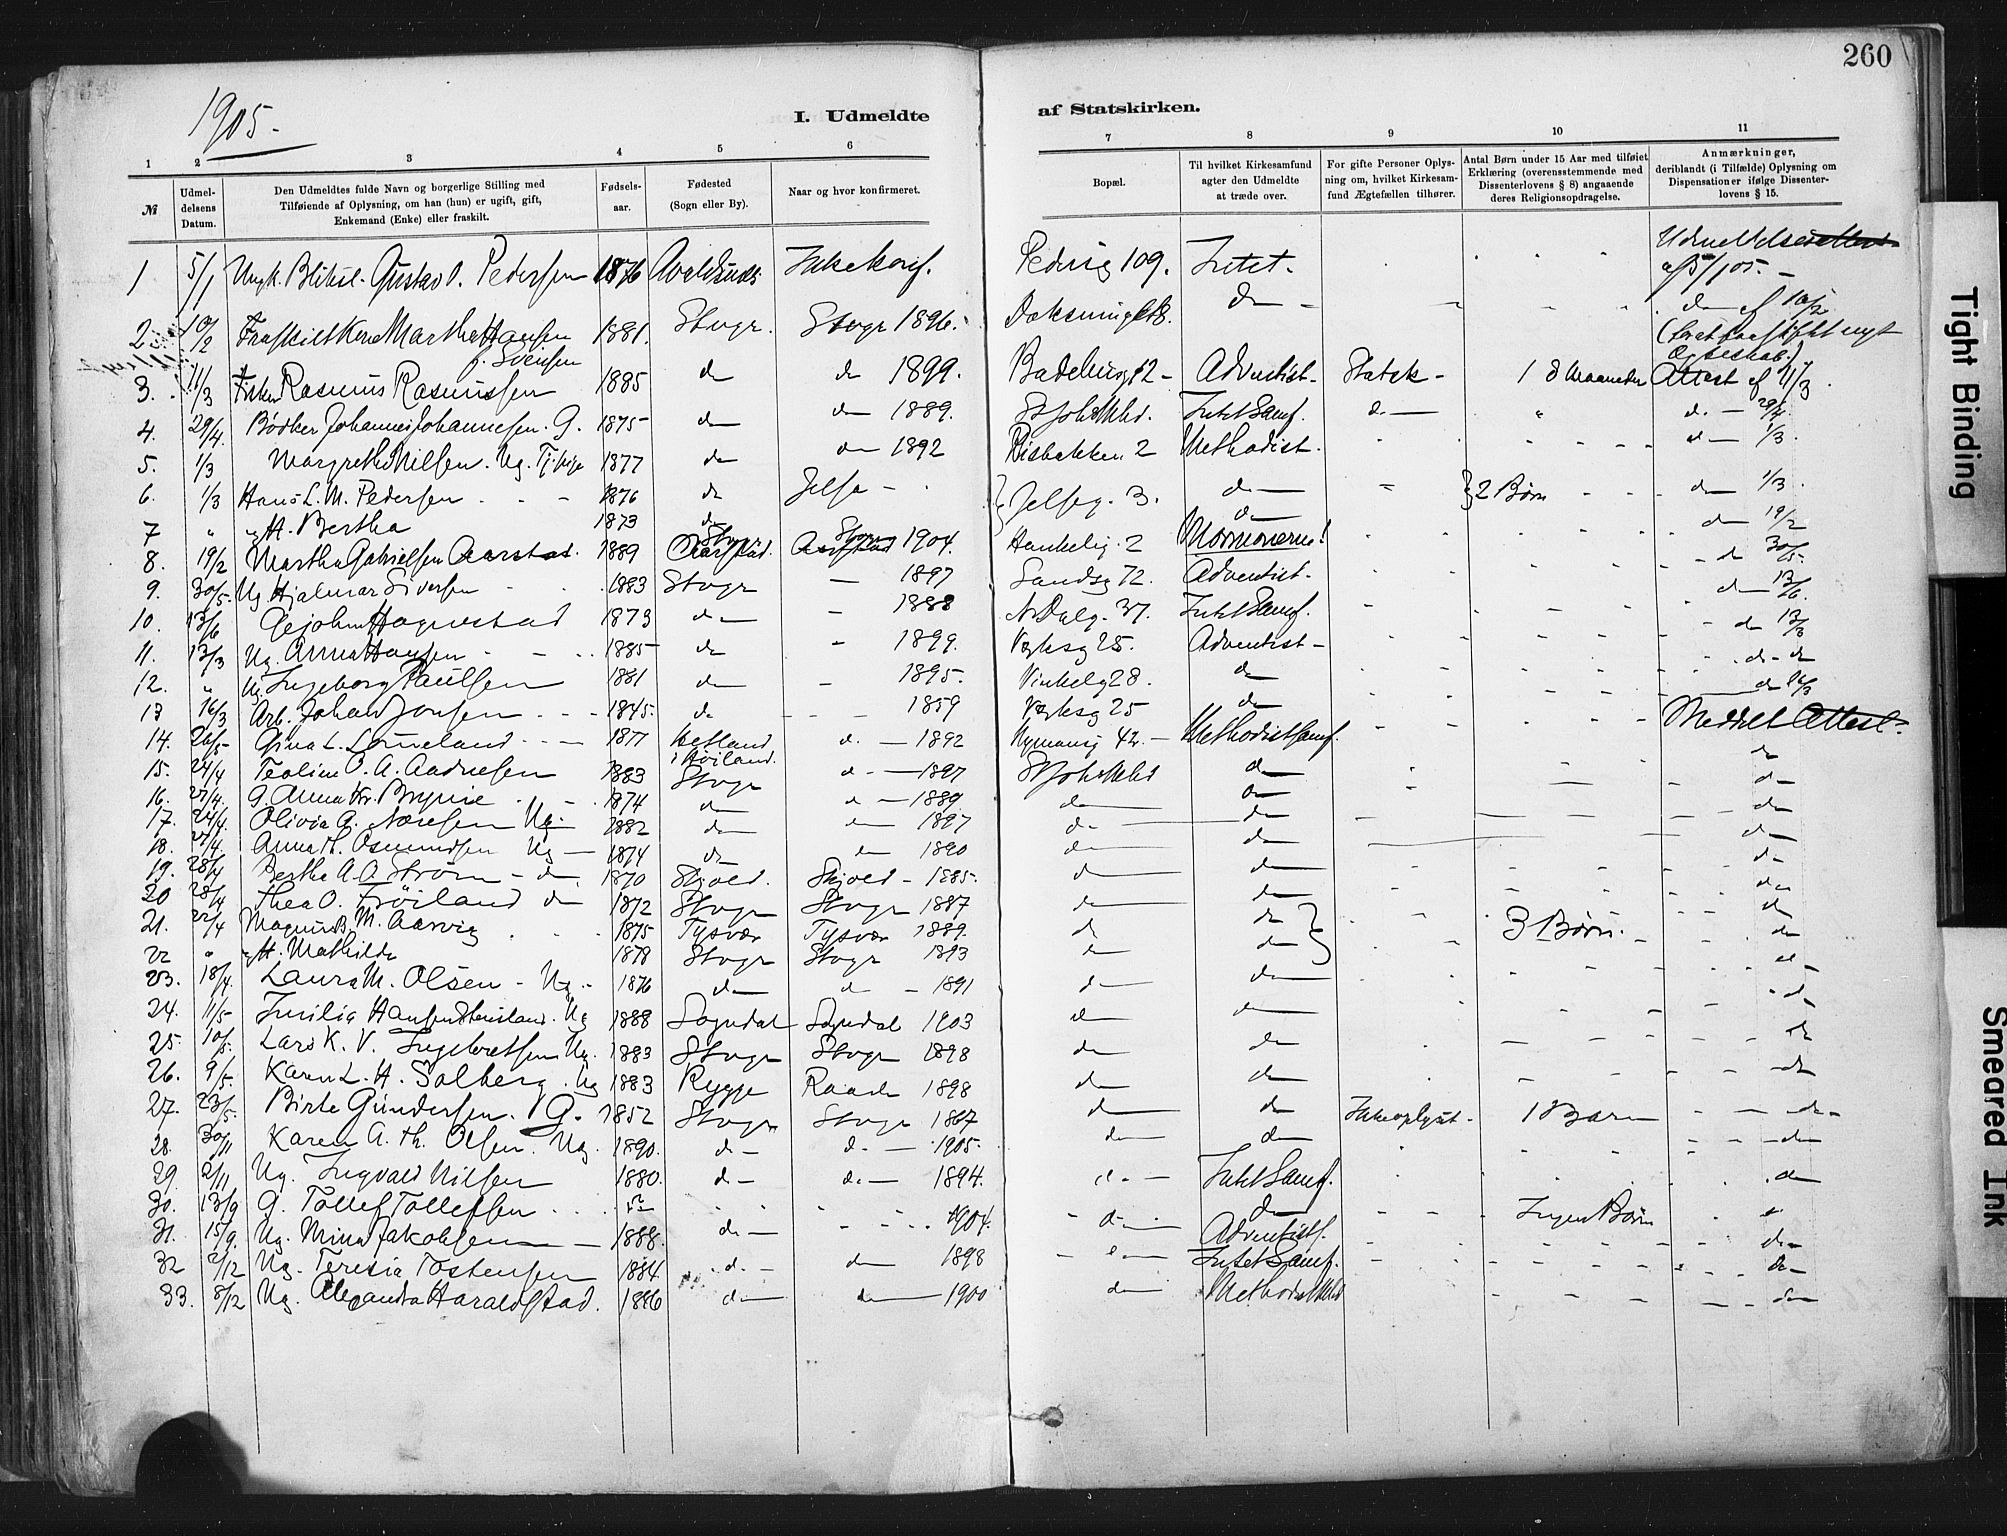 260
1905.
I. Udmeldte af Statskirken.
1 2 3 4 5 6 7 8 9 10 11
№
Udmel-
delsens
Datum.
Den Udmeldtes fulde Navn og borgerlige Stilling med
Tilføiende af Oplysning, om han (hun) er ugift, gift,
Enkemand (Enke) eller fraskilt.
Fødsels-
aar.
Fødested
(Sogn eller By).
Naar og hvor konfirmeret.
Bopæl.
Til hvilket Kirkesamfund
agter den Udmeldte
at træde over.
For gifte Personer Oplys-
ning om, hvilket Kirkesam-
fund Ægtefællen tilhører.
Antal Børn under 15 Aar med tilføiet
Erklæring (overensstemmende med
Dissenterlovens § 8) angaaende
deres Religionsopdragelse.
Anmærkninger,
deriblandt (i Tilfælde) Oplysning om
Dispensationer ifølge Dissenter-
lovens § 15.
1 5/1 Ungk. Gustav O. Pedersen 1876 Ikke konf. Pedersg 109. Intet. af 5/1 05. -
2 10/2 Fraskilt Kone Martha Hansen 1881. Stvgr. Stvgr 1896. d af 10/2
f. Svensen
3. 11/3 Rasmus Rasmussen 1885 d d 1899. Badehusg 12 - Adventist - Statsk - 1 8 Maaneder Attest af 11/3.
4. 29/4. Bødker Johannes Johannesen. G. 1875 d d 1889. St Johs Intet Samf. d d - 29/4
5. 1/3 Margrethe Nilsen. Ug. 1877 d d 1892 Risbakken 2 Methodist. d 1/3.
6. 1/3 Hans L. M. Pedersen 1876 d Jelse - Jelseg. 3. d } 2 Børn d 1/3.
7 " " H. Bertha 1873 d d
8. 19/2 Martha Gabrielsen Aarstad. 1889 Stvgr Stvgr 1904. Hankelig. 2 Mormonerne! d 19/2
9. 30/5. Ug. Hjalmar Siversen 1883 Stvgr - 1897 Sandsg 72. Adventist. d 30/5.
10. 13/6 Hognestad 1873 d - 1888 N. Dalg. 37. Intet Samf. d 13/6.
11. 13/3 Ug. Anna Hansen 1885 d - 1899. Verksg 25. Adventist - d 13/3
12. " Ug. Ingeborg Paulsen 1881 d - 1895. Vinkelg 28. d d - d
13 16/3 Arb. Johan Jonsen 1845. d - 1859 Verksg 25 d d 16/3
14. 26/5 Gina L. Lomeland 1877 Hetland d. - 1892 Nymansg 42. - Methodistsamf. Meddelt Attest.
i Høiland.
15. 24/4 Teoline O. A. Aadnesen 1883 Stvgr d - 1897 St Johs d d
16. 27/4. G. Anna Kr. Bryne 1874 d d - 1889 d d d
17. 24/4. Olivia G. Næsesen Ug. 1882 d d 1897 d d d
18. 27/4. Anna Th. Osmundsen Ug - 1874 d d 1890 d d d
19. 28/4 Berthe A. O. Strøm - d 1870 Skjold. Skjold - 1885. d d d
20 28/4 Thea O. Frøiland d 1872 Stvgr Stvgr 1887 d d d
21. 22/4 Magnus B. M. Aarvig 1875 Tysvær Tysvær 1889. d d } 3 Børn. d
22 " " H. Mathilde 1878 Stvgr Stvgr 1893 d d d
23. 18/4. Laura M. Olsen - Ug - 1876 d d - 1891 d d d
24. 11/5 Hansen Ug 1888 Sogndal Sogndal 1903 d d d
25. 10/5. Lars K. V. Ingebretsen Ug. 1883 Stvgr Stvgr 1898 d d d
26. 9/5. Karen L. H. Solberg. Ug 1883 Rygge Raade 1898 d d d
27. 23/5. Birte Gundersen. G. 1852 Stvgr Stvgr 1867 d d Ikke oplyst. 1 Barn d
28. 30/11 Karen A. Th. Olsen. Ug. 1890. d - d - 1905. d d d
29. 2/11 Ug. Ingvald Nilsen 1880. d - d - 1894. d - Intet Samf. d
30. 13/9 G. Tollef Tollefsen d Ingen Børn d
31. 15/9. Ug. Mina Jakobsen - 1888. d - 1904. d Adventists. d
32 2/12 Ug. Teresia Tostensen 1884. d - d 1898 d Intet Samf. d
33. 8/12 Ug. Alexandra Haraldstad. 1886 d d 1900 d d
Tight Binding
Smeared Ink